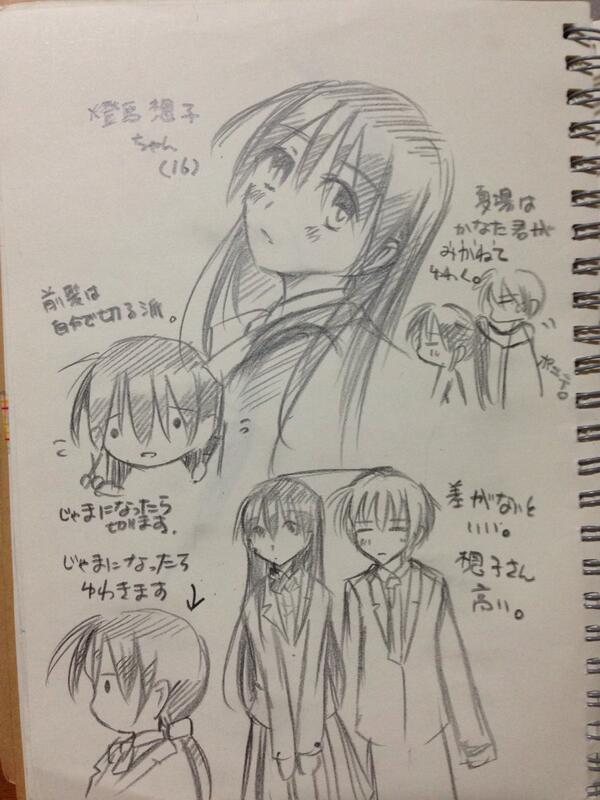 燈馬 想子
ちゃん
(16)
夏場は
かなた君が
みかねて
ゆわく。
ポニテ。
前髪は
自分で切る派。
じゃまになったら
切ります。
じゃまになったら
ゆわきます
差がないと
いい。
想子さん
高い。